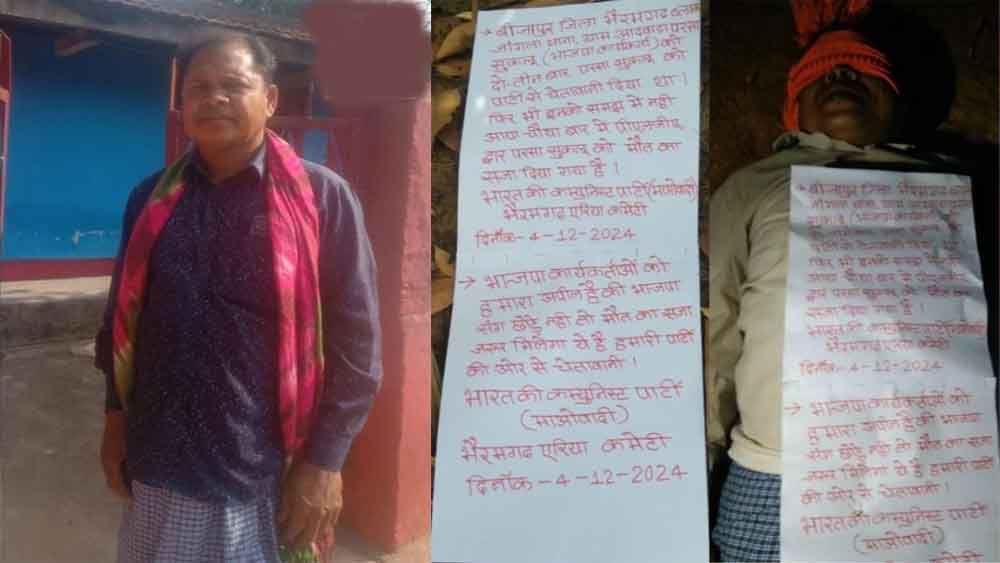 → बीजापुर जिला भैरमगढ़ ब्लाक
जांगला थाना, ग्राम आदवाड़ा परसा
सुकलू (भाजपा कार्यकर्ता) को
दो-तीन बार परसा सुकलू को
पार्टी से चेतावनी दिया था।
फिर भी इनको समझ में नहीं
आया-चौथा बार में पीएलजीए
द्वार परसा सुकलू को मौत का
सजा दिया गया है।
भारत की कम्युनिस्ट पार्टी (माओवादी)
भैरमगढ़ एरिया कमेटी
दिनाँक-4-12-2024
→ भाजपा कार्यकर्ताओं को
हमारा अपील है की भाजपा
संग छोड़े नहीं तो मौत का सजा
जरूर मिलेगा ये है हमारी पार्टी
की ओर से चेतावानी।
भारत की कम्युनिस्ट पार्टी
(माओवादी)
भैरमगढ एरिया कमेटी
दिनाँक-4-12-2024
→ बीजापुर जिला भैरमगढ़ ब्लाक
जांगला थाना, ग्राम आदवाड़ा परसा
सुकलू (भाजपा कार्यकर्ता) को
दो-तीन बार परसा सुकलू को
पार्टी से चेतावनी दिया था।
फिर भी इनको समझ में नहीं
आया-चौथा बार में पीएलजीए
द्वार परसा सुकलू को मौत का
सजा दिया गया है।
भारत की कम्युनिस्ट पार्टी (माओवादी)
भैरमगढ़ एरिया कमेटी
दिनाँक-4-12-2024
→ भाजपा कार्यकर्ताओं को
हमारा अपील है की भाजपा
संग छोड़े नहीं तो मौत का सजा
जरूर मिलेगा ये है हमारी पार्टी
की ओर से चेतावानी।
भारत की कम्युनिस्ट पार्टी
(माओवादी)
कमेटी